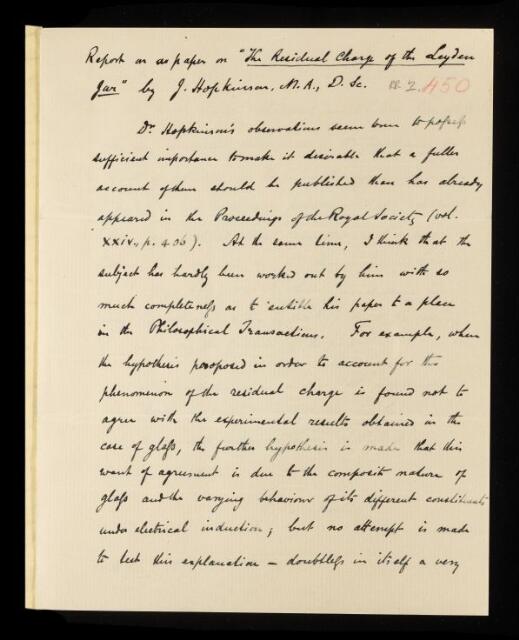 Report on a paper on "The Residual Charge of the Leyden
Jar" by J. Hopkinson, M.A., D.Sc. RR.7.450
Dr Hopkinson's observations seem to me to possess
sufficient importance to make it desirable that a fuller
account of them should be published than has already
appeared in the Proceedings of the Royal Society (vol.
XXIV, p. 406). At the same time, I think that the
subject has hardly been worked out by him with so
much completeness as to entitle his paper to a place
in the Philosophical Transactions. For example, when
the hypothesis proposed in order to account for the
phenomenon of the residual charge is found not to
agree with the experimental results obtained in the
case of glass, the further hypothesis is made that this
want of agreement is due to the composite nature of
glass and the varying behaviour of its different constituents
under electrical induction; but no attempt is made
to test this explanation – doubtless in itself a very